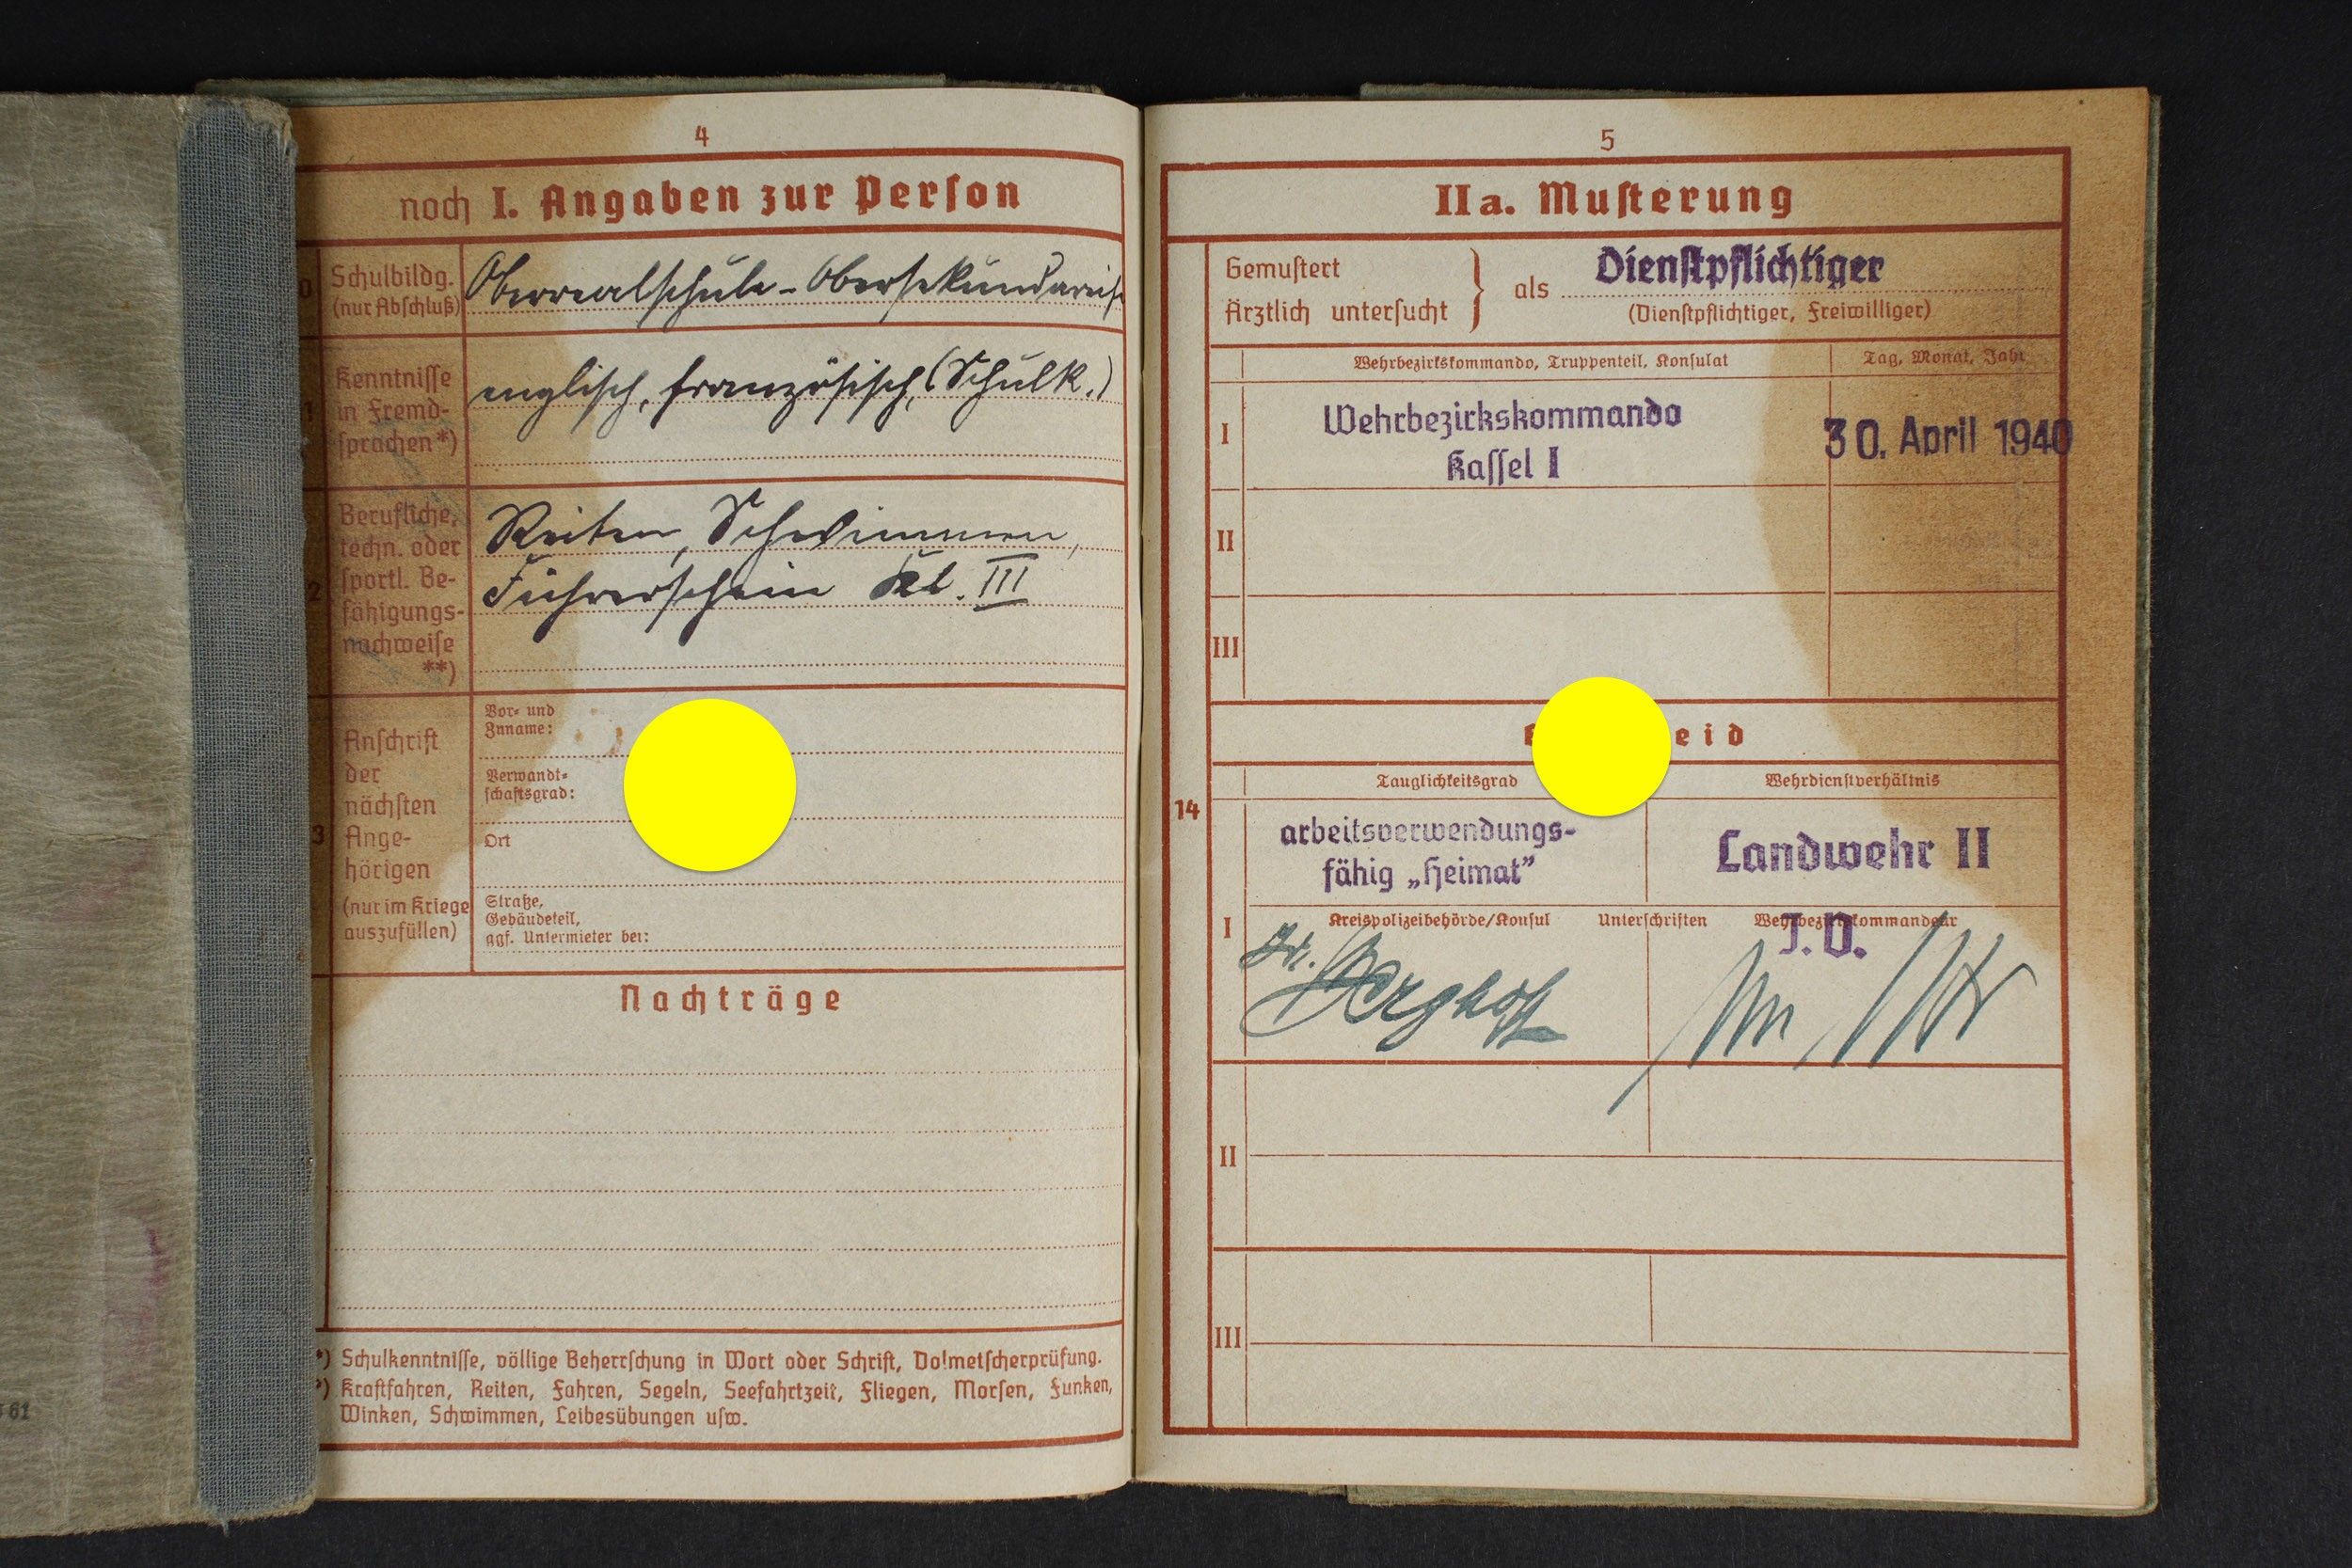 4
noch I. Angaben zur Person
Schulbildg.
(nur Abschluß)
Oberrealschule - Obersekundareife
Kenntnisse
in Fremd-
sprachen*)
englisch, französisch, (Schulk.)
2
Berufliche,
techn. oder
sportl. Be-
fähigungs-
nachweise
**)
Reiten, Schwimmen,
Führerschein Kl. III
3
Anschrift
der
nächsten
Ange-
hörigen
(nur im Kriege
auszufüllen)
Vor- und
Zuname:
Verwandt-
schaftsgrad:
Ort
Straße,
Gebäudeteil,
ggf. Untermieter bei:
Nachträge
*) Schulkenntnisse, völlige Beherrschung in Wort oder Schrift, Dolmetscherprüfung.
*) Kraftfahren, Reiten, Fahren, Segeln, Seefahrtzeit, Fliegen, Morsen, Funken,
Winken, Schwimmen, Leibesübungen usw.
61
5
IIa. Musterung
Gemustert
Ärztlich untersucht
als
Dienstpflichtiger
(Dienstpflichtiger, Freiwilliger)
Wehrbezirkskommando, Truppenteil, Konsulat
Tag, Monat, Jahr
I
Wehrbezirkskommando
Kassel I
30. April 1940
II
III
eid
14
Tauglichkeitsgrad
Wehrdienstverhältnis
I
arbeitsverwendungs-
fähig „Heimat”
Landwehr II
Kreispolizeibehörde/Konsul Unterschriften Wehrbezirkskommandeur
J. V.
Berghof
II
III